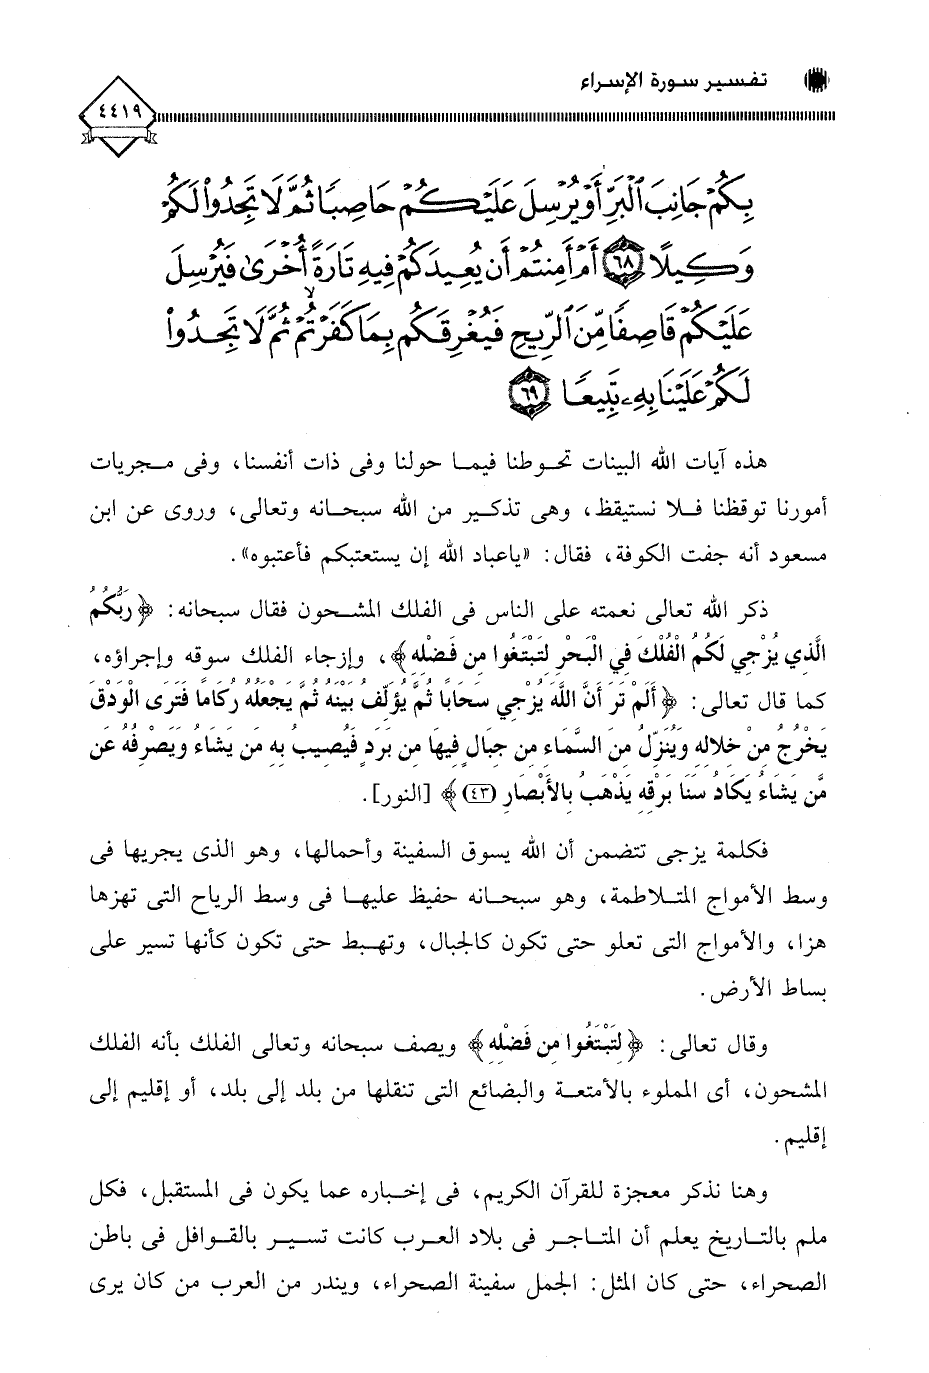 تفسير سورة الإسراء
٤٤١٩
بِكُمْ جَانِبَ ٱلْبَرِّ أَوْ يُرْسِلَ عَلَيْكُمْ حَاصِبًا ثُمَّ لَا تَجِدُوا۟ لَكُمْ
وَكِيلًا ٦٨ أَمْ أَمِنتُمْ أَن يُعِيدَكُمْ فِيهِ تَارَةً أُخْرَىٰ فَيُرْسِلَ
عَلَيْكُمْ قَاصِفًا مِّنَ ٱلرِّيحِ فَيُغْرِقَكُم بِمَا كَفَرْتُمْ ثُمَّ لَا تَجِدُوا۟
لَكُمْ عَلَيْنَا بِهِۦ تَبِيعًا ٦٩
هذه آيات الله البينات تحوطنا فيما حولنا وفى ذات أنفسنا، وفى مجريات
أمورنا توقظنا فلا نستيقظ، وهى تذكير من الله سبحانه وتعالى، وروى عن ابن
مسعود أنه جفت الكوفة، فقال: «ياعباد الله إن يستعتبكم فأعتبوه».
ذكر الله تعالى نعمته على الناس فى الفلك المشحون فقال سبحانه: ﴿ رَبُّكُمُ
الَّذِي يُزْجِي لَكُمُ الْفُلْكَ فِي الْبَحْرِ لِتَبْتَغُوا مِن فَضْلِهِ ﴾، وإزجاء الفلك سوقه وإجراؤه،
كما قال تعالى: ﴿ أَلَمْ تَرَ أَنَّ اللَّهَ يُزْجِي سَحَابًا ثُمَّ يُؤَلِّفُ بَيْنَهُ ثُمَّ يَجْعَلُهُ رُكَامًا فَتَرَى الْوَدْقَ
يَخْرُجُ مِنْ خِلالِهِ وَيُنَزِّلُ مِنَ السَّمَاءِ مِن جِبَالٍ فِيهَا مِن بَرَدٍ فَيُصِيبُ بِهِ مَن يَشَاءُ وَيَصْرِفُهُ عَن
مَّن يَشَاءُ يَكَادُ سَنَا بَرْقِهِ يَذْهَبُ بِالأَبْصَارِ (٤٣) ﴾ [النور].
فكلمة يزجى تتضمن أن الله يسوق السفينة وأحمالها، وهو الذى يجريها فى
وسط الأمواج المتلاطمة، وهو سبحانه حفيظ عليها فى وسط الرياح التى تهزها
هزا، والأمواج التى تعلو حتى تكون كالجبال، وتهبط حتى تكون كأنها تسير على
بساط الأرض.
وقال تعالى: ﴿ لِتَبْتَغُوا مِن فَضْلِهِ ﴾ ويصف سبحانه وتعالى الفلك بأنه الفلك
المشحون، أى المملوء بالأمتعة والبضائع التى تنقلها من بلد إلى بلد، أو إقليم إلى
إقليم.
وهنا نذكر معجزة للقرآن الكريم، فى إخباره عما يكون فى المستقبل، فكل
ملم بالتاريخ يعلم أن المتاجر فى بلاد العرب كانت تسير بالقوافل فى باطن
الصحراء، حتى كان المثل: الجمل سفينة الصحراء، ويندر من العرب من كان يرى